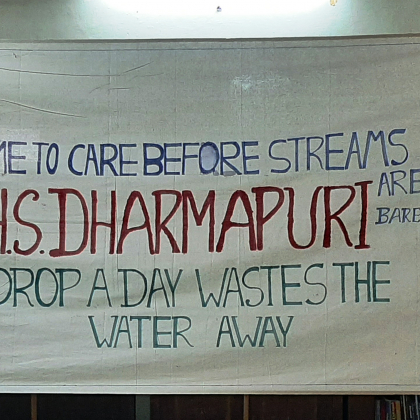 ME TO CARE BEFORE STREAMS
ARE
H.S. DHARMAPURI
BARE
DROP A DAY WASTES THE
WATER AWAY